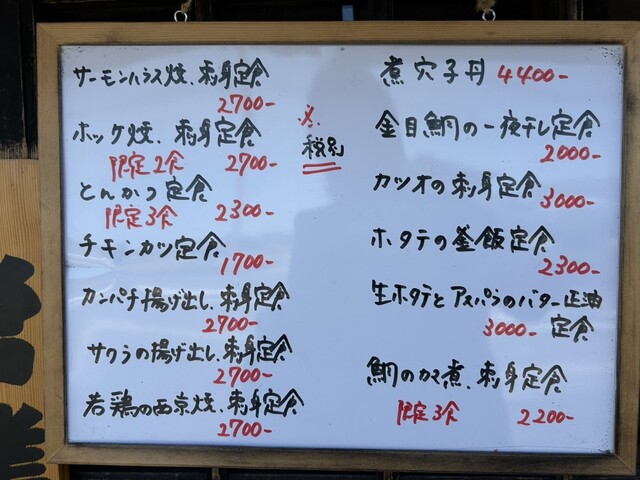 サーモンハラス焼、刺身定食
2700-
ホッケ焼、刺身定食
限定2食 2700-
とんかつ定食
限定3食 2300-
チキンカツ定食
1700-
カンパチ揚げ出し、刺身定食
2700-
サワラの揚げ出し、刺身定食
2700-
若鶏の西京焼、刺身定食
2700-
※、
税別
煮穴子丼 4400-
金目鯛の一夜干し定食
2000-
カツオの刺身定食
3000-
ホタテの釜飯定食
2300-
生ホタテとアスパラのバター正油
3000- 定食
鯛のカマ煮、刺身定食
限定3食 2200-